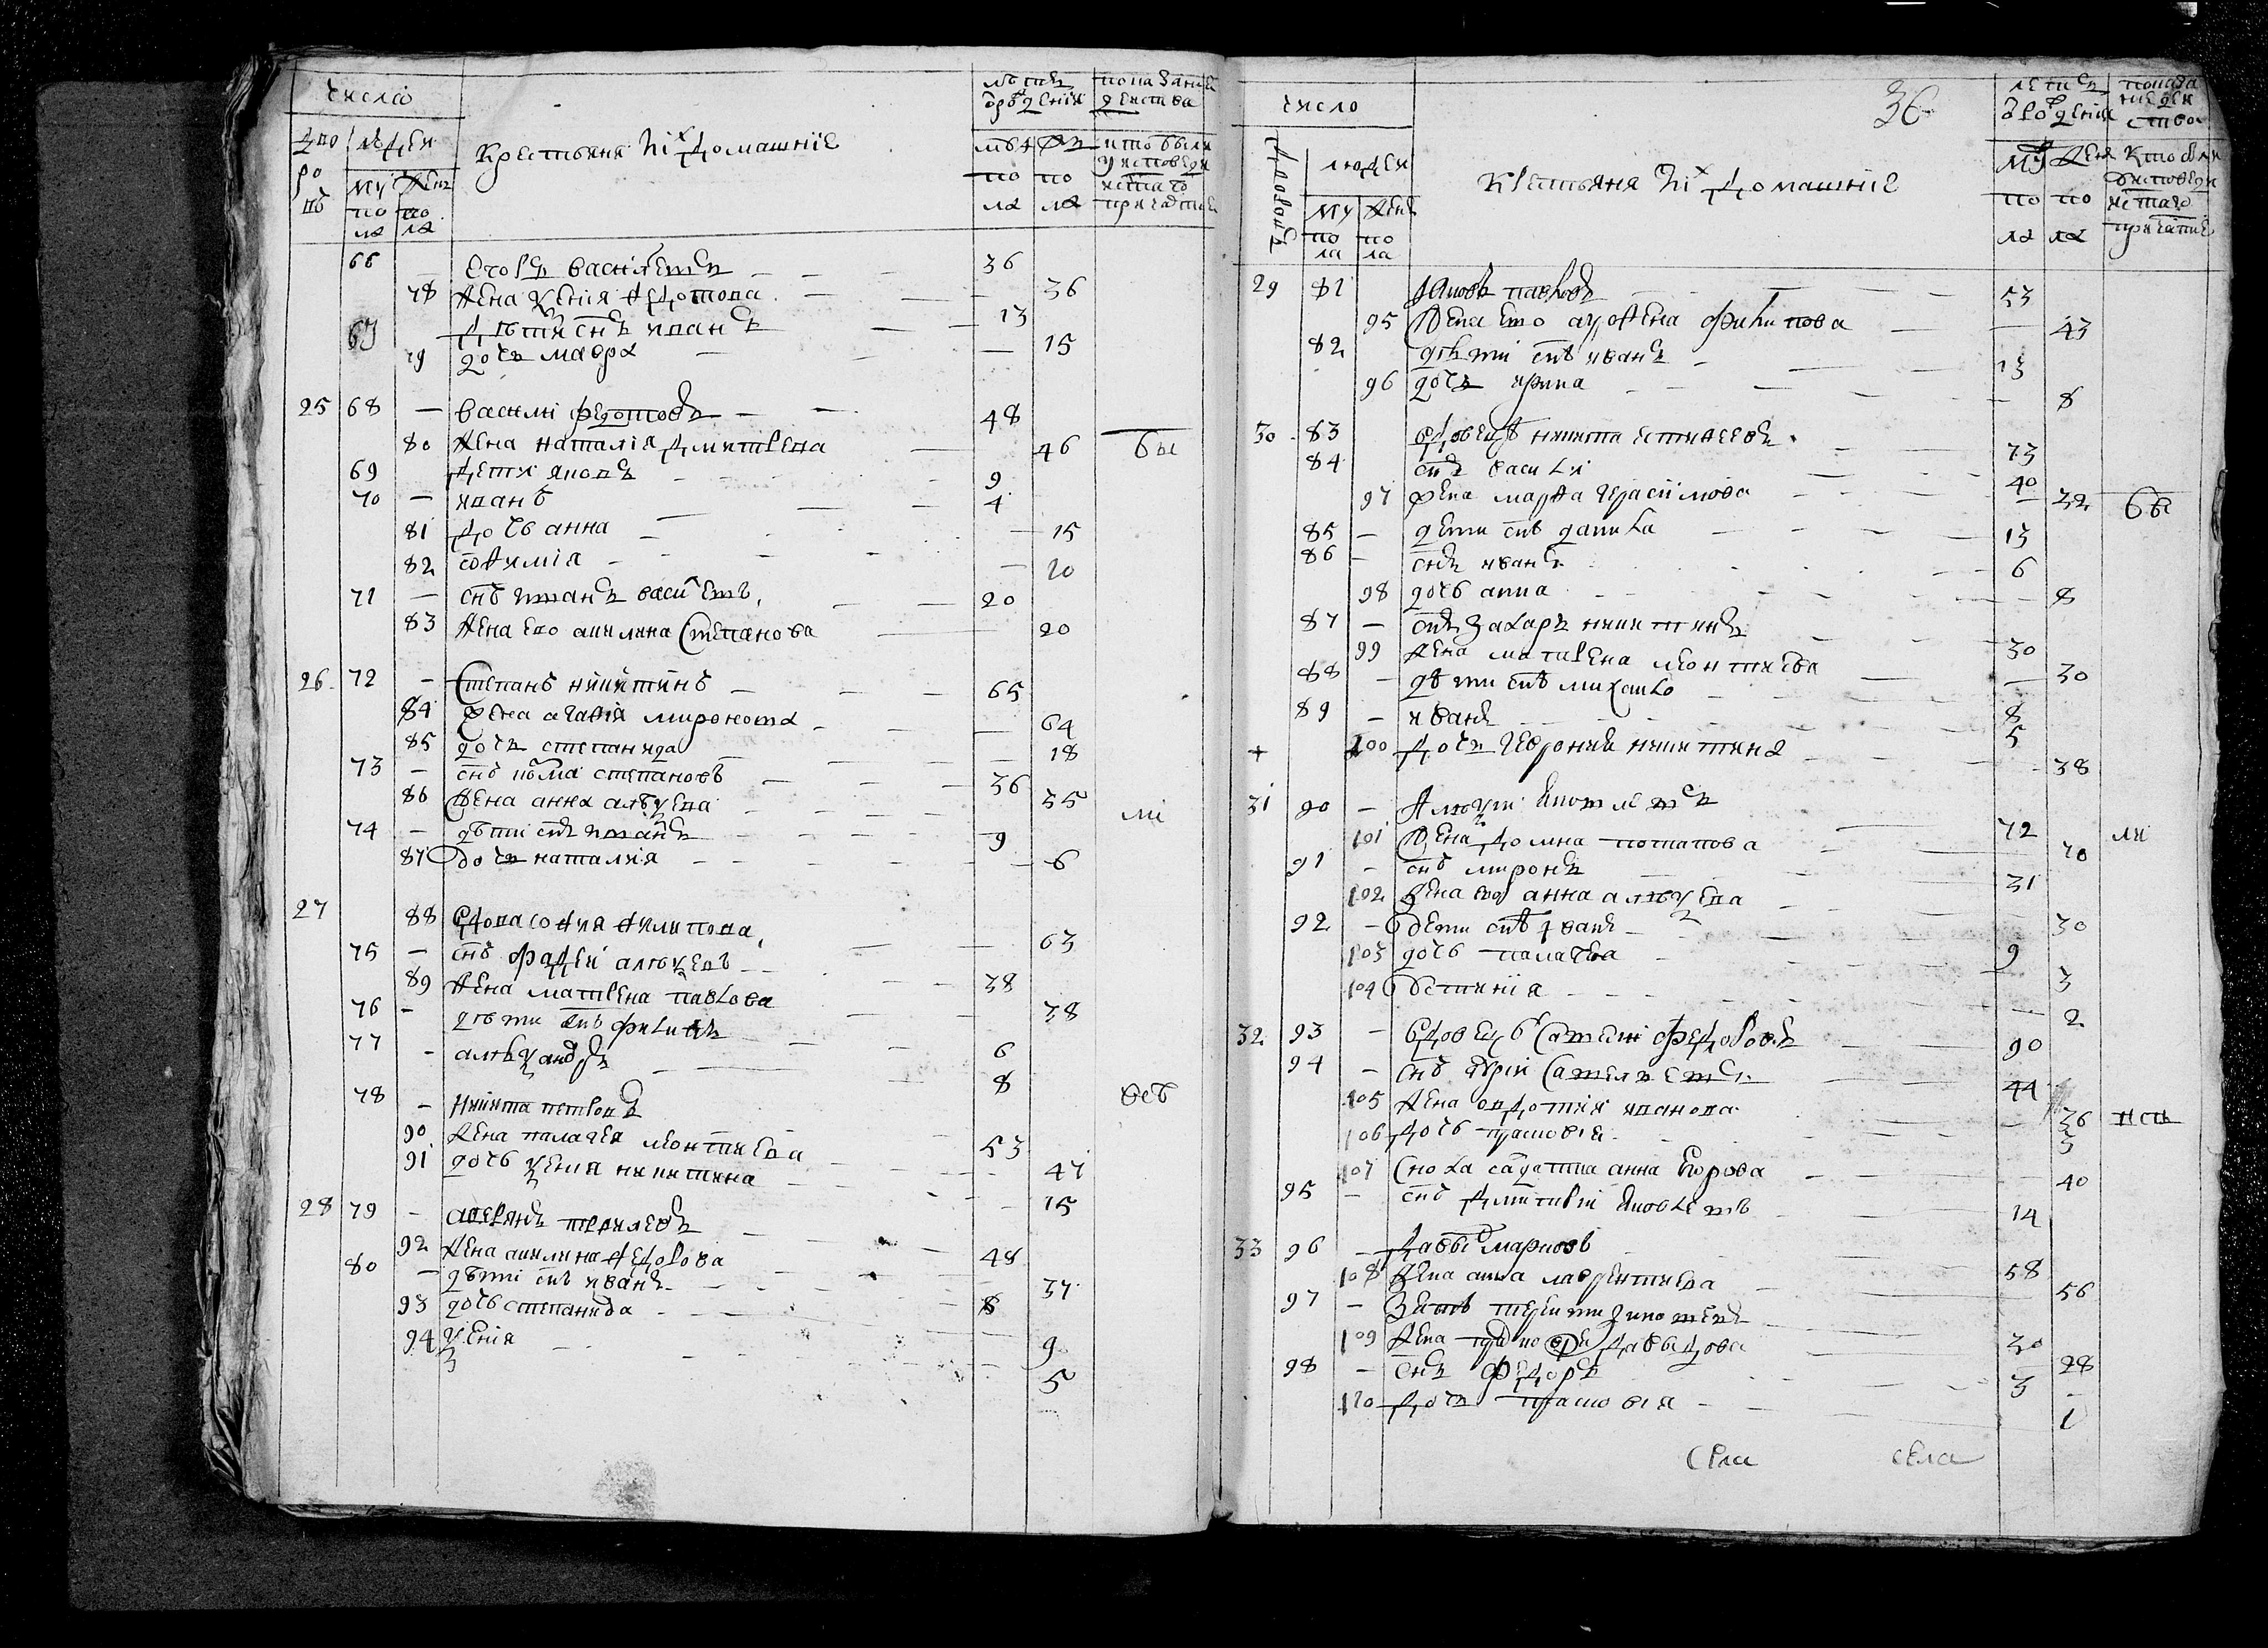 числа
дворовъ
людеи
му пола
жен пола
Крестьяня и их домашние
лѣта от рождения
му пола
же пола
показание действа
кто были у исповеди и святаго причастие
66 Егоръ василіевъ 36
78 жена ксения федотова 36
67 дѣти снъ иванъ 13
79 дочь мавра 15
25 68 василиі федотовъ 48
80 жена наталія дмитреева 46 бы
69 дети яковъ 9
70 иванъ 4
81 дочь анна 15
82 софимія 10
71 снъ степанъ васильевъ 20
83 жена ево акилина степанова 20
26 72 степанъ никитинъ 65
84 жена агафія миронова 64
85 дочь степанида 18
73 снъ козма степановъ 36
86 жена анна алеѯеева 35 ли
74 дѣти снъ иванъ 9
87 дочь наталия 6
27 88 вдова софия филипова 63
75 снъ фадеи алеѯеевъ 38
89 жена матрена павлова 38
76 дѣти снъ филипъ 6
77 алеѯандръ 8
78 никита петровъ 53 всѣ
90 жена палагея леонтиева 47
91 дочь ѯения никитина 15
28 79 аверянъ 48
92 жена акилина федорова 37
80 дѣти снъ иванъ 8
93 дочь степанида 9
94 ѯения 5
36
число
дворовъ
людеи
му пола
жен пола
крестьяня и их домашние
лета от рождения
му пола
жен пола
показание деиства
кто были у исповеди и святаго причастие
29 81 яковъ павловъ 53
95 жена ево аѯена филипова 43
82 дѣти снъ иванъ 13
96 дочь ирина 8
30 83 вдовецъ никита естифеевъ 73
84 снъ василиі 40
97 жена марфа герасимова 32 бы
85 дети снъ данила 13
86 снъ иванъ 6
98 дочь анна 8
87 снъ захаръ никитинъ 30
99 жена матрена леонтиева 30
88 дѣти снъ михаило 8
89 иванъ 5
+ 100 дочь феврония никитина 38
31 90 72 ли
101 жена домна потапова 70
91 снъ миронъ 31
102 жена ево анна алеѯеева 30
92 дети снъ иванъ 9
103 дочь палагея 3
104 устиния 2
32 93 вдовецъ савелиі федоровъ 90
94 снъ юрии савельевъ 44
105 жена овдотия иванова 36 исп
106 дочь прасковя 3
107 сноха салдатка анна егорова 40
95 снъ дмитриі яковлевъ 14
33 96 давыд марковъ 58
108 жена анна лаврентиева 56
97 зять терентиі 30
109 жена прасковя давыдова 28
98 снъ федоръ 3
110 дочь прасковия 1
села
села